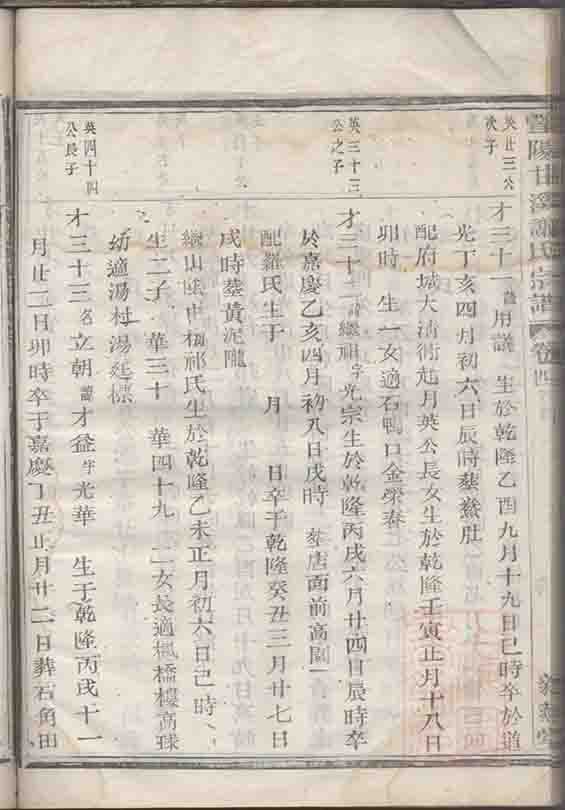 暨陽甘溪謝氏宗譜 卷四
英廿三公
次子
才三十一 諱 用議 生於乾隆乙酉九月十九日巳時卒於道
光丁亥四月初六日辰時墓
配府城大 起月英公長女生於乾隆壬寅正月十八日
卯時 生一女適石鴨口金榮春
英三十三
公之子
才三十二 諱 繼祖 字 光宗生於乾隆丙戌六月廿四日辰時卒
於嘉慶乙亥四月初八日戌時 葬店面前高
配羅氏生于 月 日卒于乾隆癸丑三月廿七日
戌時墓黃泥隴
繼山陰中 祁氏生於乾隆乙未正月初六日己時
生二子 華三十 華四十九 二女長適楓橋樓高球
幼適湯村湯廷標
英四十四
公長子
才三十三 名 立朝 諱 才益 字 光華 生于乾隆丙戌十一
月廿二日卯時卒于嘉慶丁丑正月廿二日葬石角田